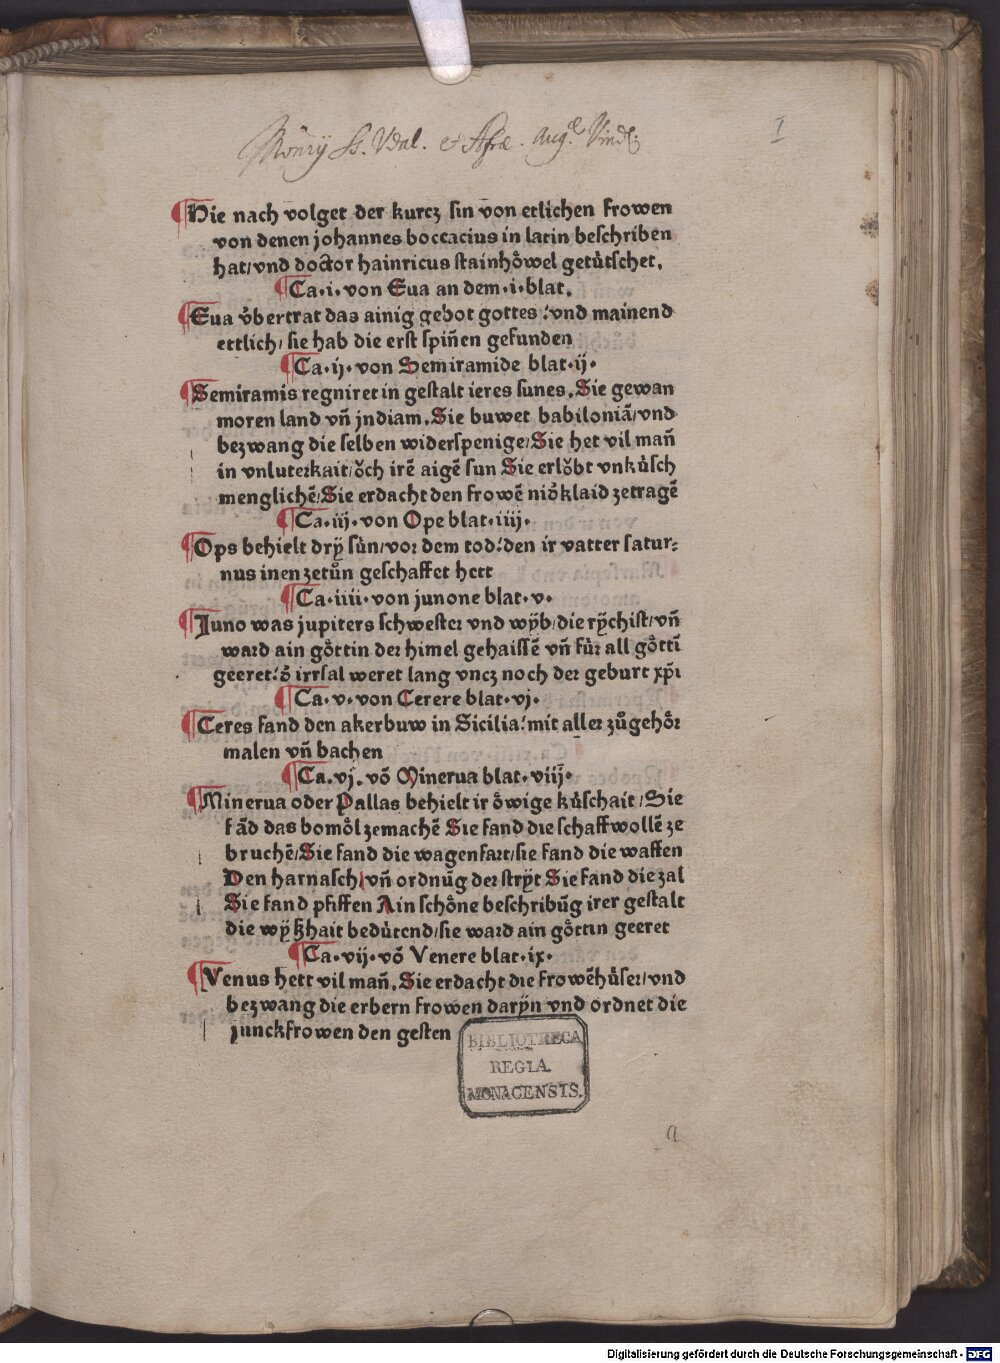 Monrij Ss. Vdal. & Afræ. Aug.e Vindl.
I
¶Hie nach volget der kurcz sin von etlichen frowen
von denen johannes boccacius in latin beschriben
hat/vnd doctor hainricus stainhöwel getütschet.
¶Ca.i. von Eua an dem.i.blat.
¶Eua v̊bertrat das ainig gebot gottes/vnd mainend
ettlich/sie hab die erst spiñen gefunden
¶Ca.ij. von Semiramide blat.ij.
¶Semiramis regniret in gestalt ieres sunes. Sie gewan
moren land vñ jndiam. Sie buwet babiloniā/vnd
bezwang die selben widerspenige/Sie het vil mañ
in vnluterkait/öch irē aigē sun Sie erlöbt vnkůsch
menglichē/Sie erdacht den frowē nid̕klaid zetragē
¶Ca.iij. von Ope blat.iiij.
¶Ops behielt drÿ sün/vor dem tod/den ir vatter satur⸗
nus inen zetůn geschaffet hett
¶Ca.iiii. von junone blat.v.
¶Juno was jupiters schwester vnd wÿb/die rÿchist/vñ
ward ain göttin der himel gehaissē vñ für all götti
geeret/d̕ irrsal weret lang vncz noch der geburt xp̄i
¶Ca.v. von Cerere blat.vj.
¶Ceres fand den akerbuw in Sicilia/mit aller zůgehör
malen vñ bachen
¶Ca.vj. vō Minerua blat.viij.
¶Minerua oder Pallas behielt ir öwige kůschait/Sie
fād das bomöl zemachē Sie fand die schaffwollē ze
bruchē/Sie fand die wagenfart/sie fand die waffen
Den harnasch/vñ ordnūg der strÿt Sie fand die zal
Sie fand pfiffen Ain schöne beschribūg irer gestalt
die wÿßhait bedütend/sie ward ain göttin geeret
¶Ca.vij. vō Venere blat.ix.
¶Venus hett vil mañ. Sie erdacht die frowēhüser/vnd
bezwang die erbern frowen darÿn vnd ordnet die
junckfrowen den gesten
BIBLIOTHECA
REGIA.
MONACENSIS.
a
Digitalisierung gefördert durch die Deutsche Forschungsgemeinschaft - DFG